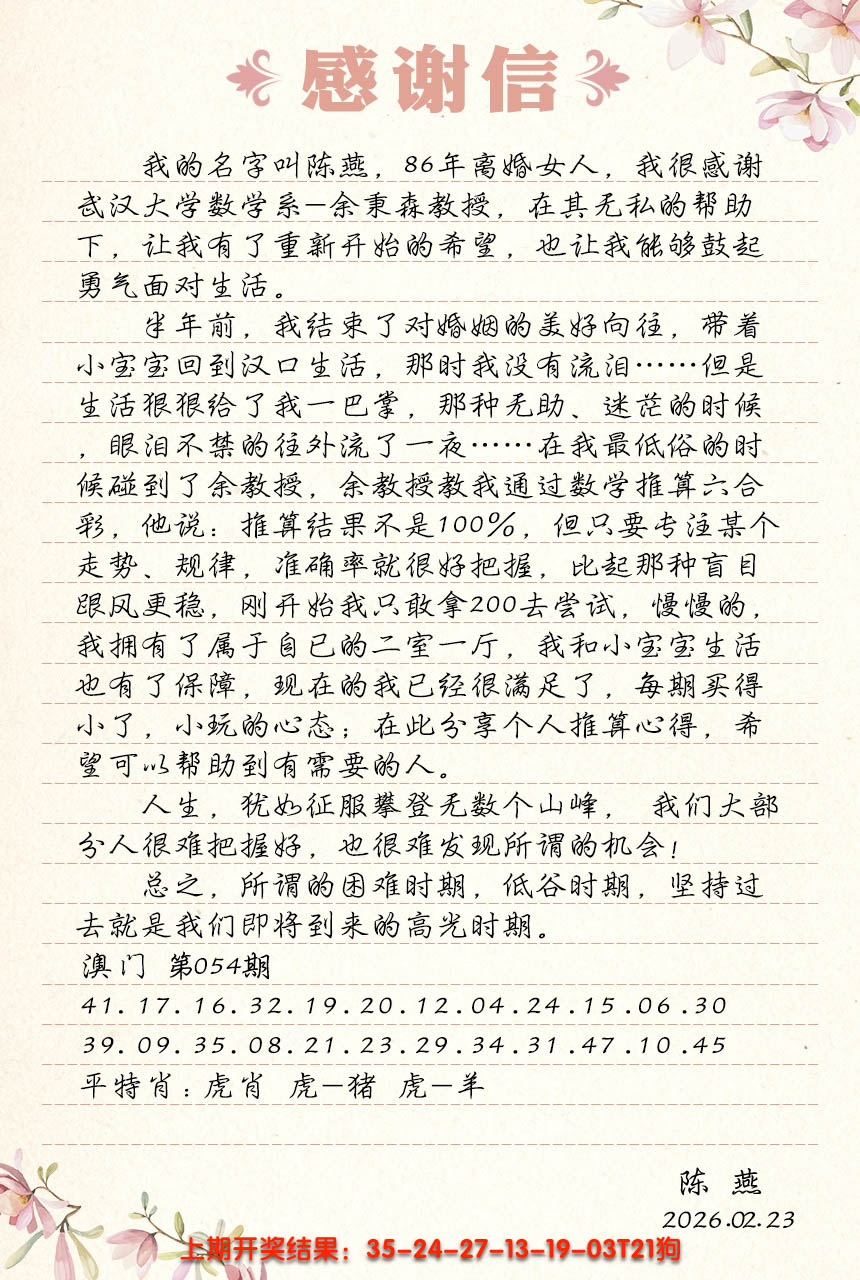 感谢信
我的名字叫陈燕，86年离婚女人，我很感谢
武汉大学数学系-余秉森教授，在其无私的帮助
下，让我有了重新开始的希望，也让我能够鼓起
勇气面对生活。
半年前，我结束了对婚姻的美好向往，带着
小宝宝回到汉口生活，那时我没有流泪……但是
生活狠狠给了我一巴掌，那种无助、迷茫的时候
，眼泪不禁的往外流了一夜……在我最低俗的时
候碰到了余教授，余教授教我通过数学推算六合
彩，他说：推算结果不是100%，但只要专注某个
走势、规律，准确率就很好把握，比起那种盲目
跟风更稳，刚开始我只敢拿200去尝试，慢慢的，
我拥有了属于自已的二室一厅，我和小宝宝生活
也有了保障，现在的我已经很满足了，每期买得
小了，小玩的心态；在此分享个人推算心得，希
望可以帮助到有需要的人。
人生，犹如征服攀登无数个山峰， 我们大部
分人很难把握好，也很难发现所谓的机会！
总之，所谓的困难时期，低谷时期，坚持过
去就是我们即将到来的高光时期。
澳门 第054期
41.17.16.32.19.20.12.04.24.15.06.30
39.09.35.08.21.23.29.34.31.47.10.45
平特肖：虎肖 虎-猪 虎-羊
陈 燕
2026.02.23
上期开奖结果：35-24-27-13-19-03T21狗